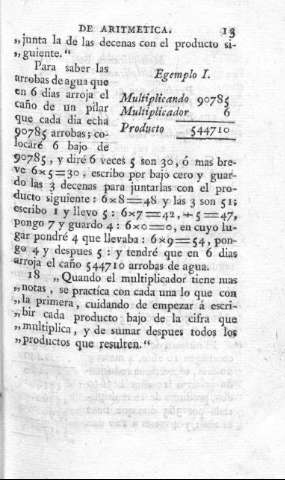 DE ARITMETICA. 13
„junta la de las decenas con el producto si-
„guiente.“
Para saber las
arrobas de agua que
en 6 dias arroja el
caño de un pilar
que cada dia echa
90785 arrobas; co-
locaré 6 bajo de
Egemplo I.
Multiplicando 90785
Multiplicador 6
Producto 544710
90785, y diré 6 veces 5 son 30, ó mas bre-
ve 6×5=30, escribo por bajo cero y guar-
do las 3 decenas para juntarlas con el pro-
ducto siguiente: 6×8=48 y las 3 son 51;
escribo 1 y llevo 5: 6×7=42, + 5=47,
pongo 7 y guardo 4: 6×0=0, en cuyo lu-
gar pondré 4 que llevaba: 6×9=54, pon-
go 4 y despues 5: y tendré que en 6 dias
arroja el caño 544710 arrobas de agua.
18 „Quando el multiplicador tiene mas
„notas, se practíca con cada una lo que con
„la primera, cuidando de empezar á escri-
„bir cada producto bajo de la cifra que
„multiplica, y de sumar despues todos los
„productos que resulten.“